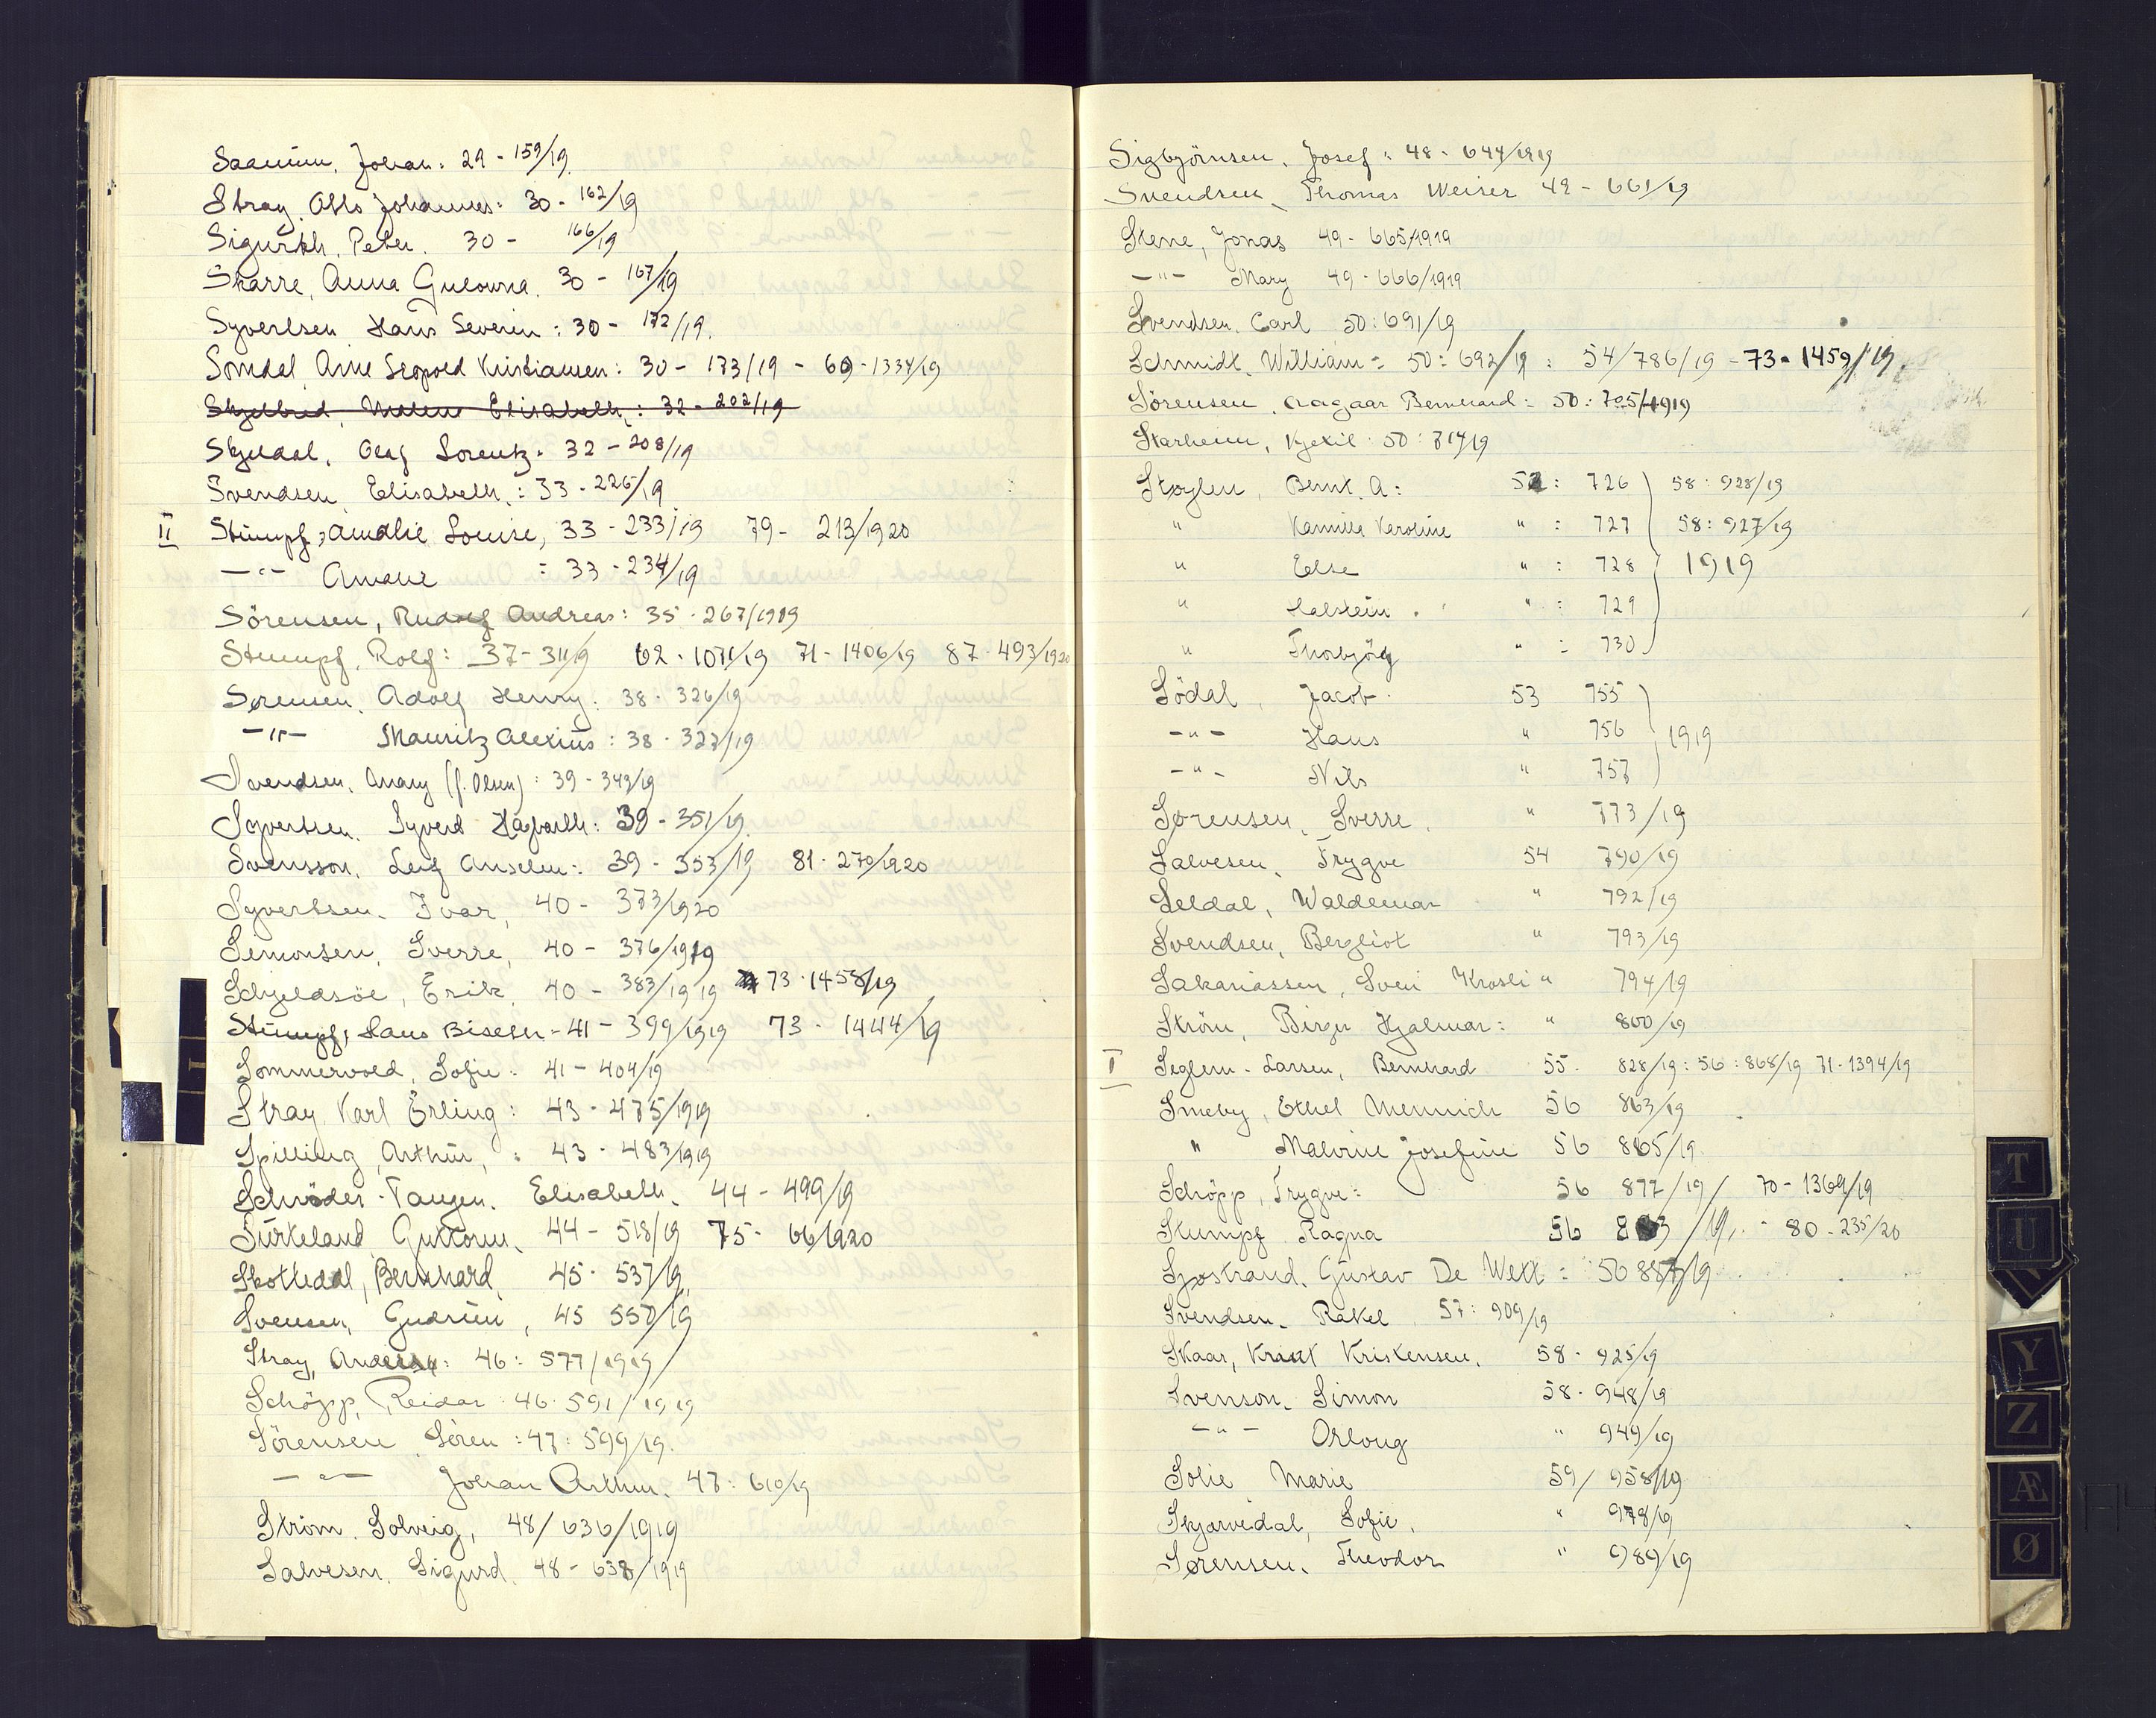 Saanum, Johan: 29 - 159/19.
Stray, Otto Johannes: 30 - 162/19
Sigurth, Peter. 30 - 166/19
Skarre, Anna Gulowna. 30 - 167/19
Syvertsen Hans Severin: 30 - 172/19.
Somdal Arne Leopold Kristiansen: 30 - 173/19 - 69 - 1334/19
Skjelbred, Malene Elisabeth: 32 - 202/19
Skjeldal, Olaf Lorentz. 32 - 208/19
Svendsen, Elisabeth: 33 - 226/19
II Stumpf, Amalie Louise, 33 - 233/19 79 - 213/1920
-"- Amalie : 33 - 234/19
Sörensen, Rudolf Andreas: 35 - 267/1919
Stumpf, Rolf: 37 - 311/19 62 - 1071/19 71 - 1406/19 87 - 493/1920
Sørensen, Adolf Henry: 38 - 326/19
-"- Mauritz Alexius: 38 - 327/19
Svendsen, Anny (f. Olsen): 39 - 343/19
Syvertsen. Syverd Hagbarth: 39 - 351/19.
Svensson, Leif Anselm: 39 - 353/19 81 - 270/1920
Syvertsen. Ivar, 40 - 373/1920
Simonsen, Sverre, 40 - 376/1919
Schjeldsöe, Erik, 40 - 383/1919 73 - 1458/19
Stumpf, Hans Bisetn - 41 - 399/1919 73 - 1444/19
Sommervold, Sofie. 41 - 404/19
Stray, Karl Erling: 43 - 475/1919
Spilling, Arthur, : 43 - 483/1919
Schröder-Tangen. Elisabeth. 44 - 499/19
Surteland, Guttorm, 44 - 518/19 75 - 66/1920
Skottedal, Bernhard, 45 - 537/19,
Svensen, Gudrun, 45 550/19
Stray, Anders: 46: 577/1919/
Schöpp, Reidar: 46. 591/1919
Sörensen Sören: 47: 599/19.
-"- Johan Arthur. 47: 610/19
Ström. Solveig, 48/636/1919
Salvesen. Sigurd. 48 - 638/1919
Sigbjörnsen, Josef: 48 - 644/1919
Svendsen, Thomas Weiser 49 - 661/19
Stene, Jonas 49 - 665/1919
-"- Mary 49 - 666/1919
Svendsen. Carl 50: 691/19
Schmidt, William: 50: 692/19: 54/786/19 - 73 - 1459/19.
Sörensen, Aagaar Bernhard: 50: 705/1919
Starheim, Kjetil: 50: 714/19
Støylen, Bernt. A: 52: 726 58: 928/19
" Kamilla Karoline " : 727 58: 927/19
" Else " : 728 1919
" Halstein. " : 729
" Thorbjörg " : 730
Södal, Jacob. 53 755
-"- Hans " 756 1919
-"- Nils " 757
Sørensen, Sverre, " 773/19
Salvesen, Trygve 54 790/19
Seldal, Waldemar " 792/19
Svendsen, Bergliot " 793/19
Sakariassen, Sven Krosli " 794/19
Ström, Birger Hjalmar: " 800/19
I Seglem-Larsen, Bernhard 55. 828/19: 56: 868/19 71 - 1394/19
Smeby, Ethel Mennich 56 863/19
" Malvine Josefine 56 865/19.
Schöpp, Trygve: 56 877/19/ 70 - 1369/19
Stumpf Ragna 56 /19,. - 80 - 235/20
Sjöstrand, Gustav De Wett: 56 887/19
Svendsen. Rakel 57: 909/19
Skaar, Knut Kristensen, 58 - 925/19
Svenson. Simon 58 - 948/19
-"- Orloug " 949/19
Solie Marie 59/ 958/19
Skjævedal, Sofie, " 978/19
Sørensen. Theodor " 989/19
T
U
V
Y
Z
Æ
Ø